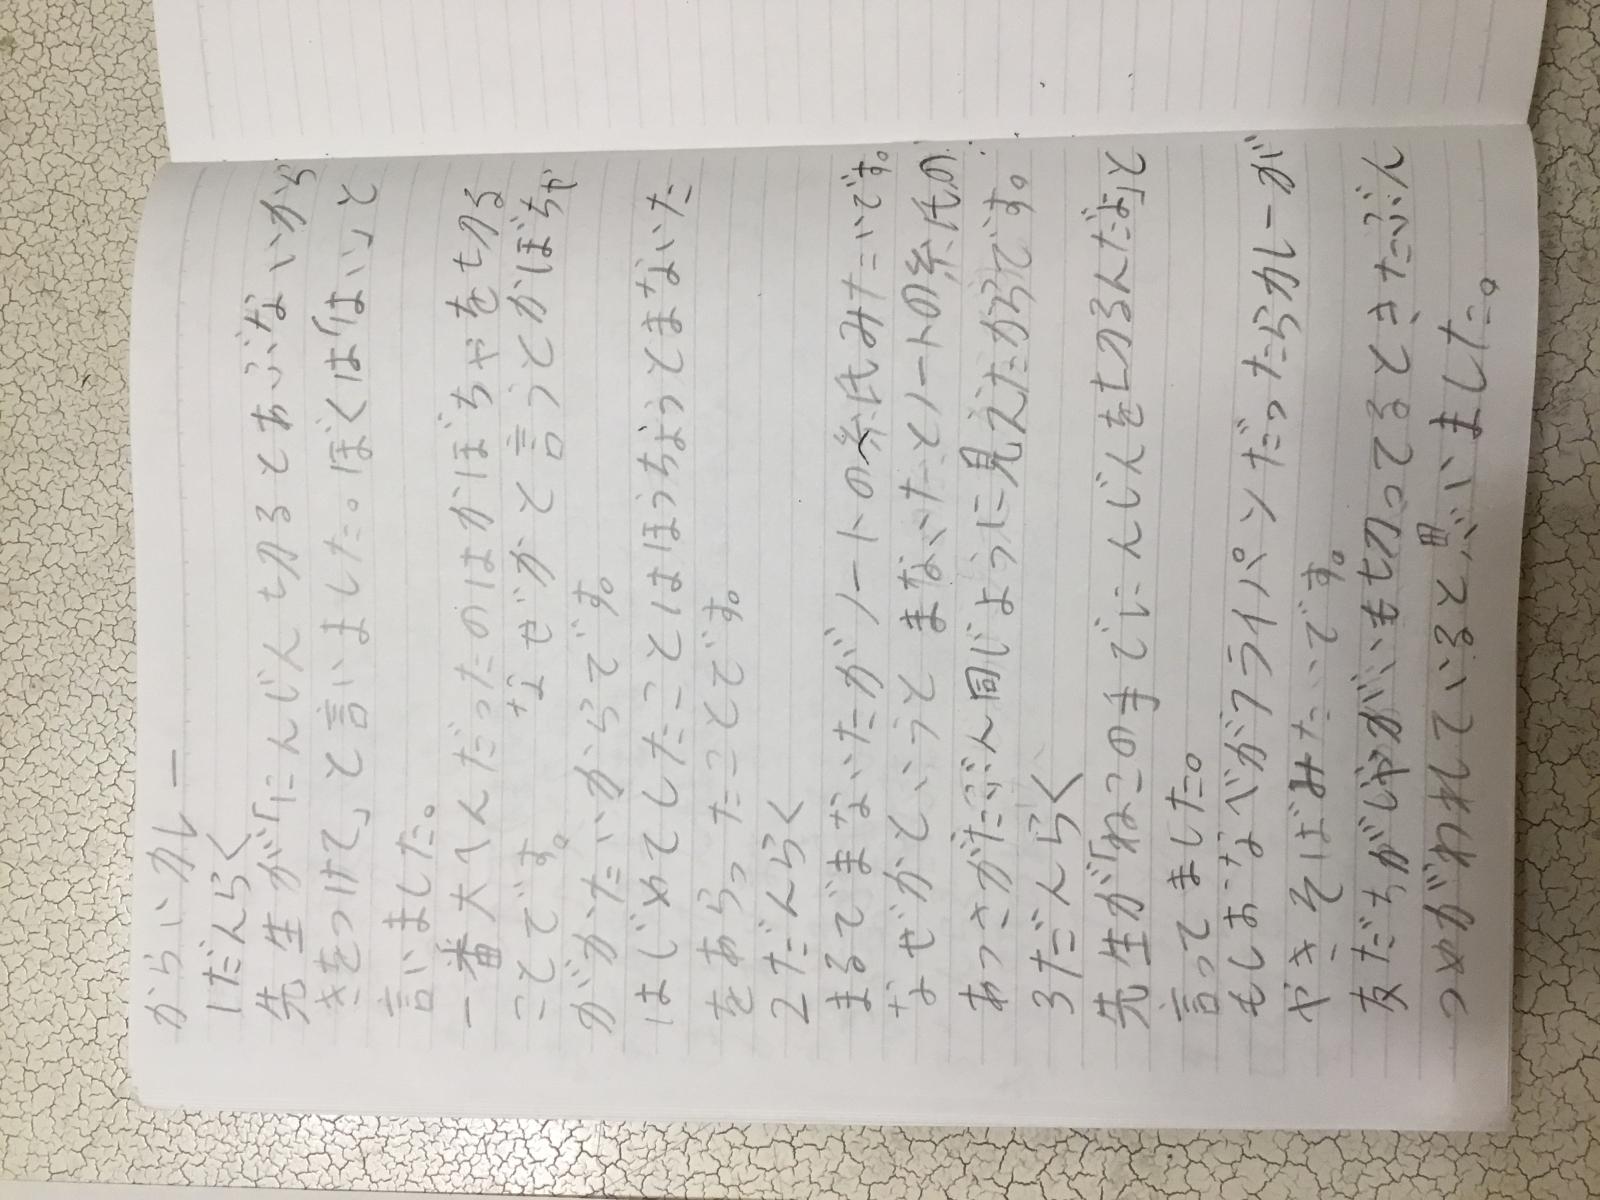 からいカレー
1だんらく
先生が「にんじん切るとあぶないから
きをつけて」と言いました。ぼくは「はい」と
言いました。
一番大へんだったのはかぼちゃを切る
ことです。なぜかと言うとかぼちゃ
がかたいからです。
はじめてしたことはほうちょうとまないた
をあらったことです。
2だんらく
まるでまないたがノートの紙みたいです。
なぜかというとまないたとノートの紙の
あつさがたぶん同じように見えたからです。
3だんらく
先生が「ねこの手でにんじんを切るんだよ」と
言ってました。
もしおなべがフライパンだったらカレーが
やきそばみたいです。
友だちがじゃがいも切ってるときたぶん
つめがわれていると思いました。